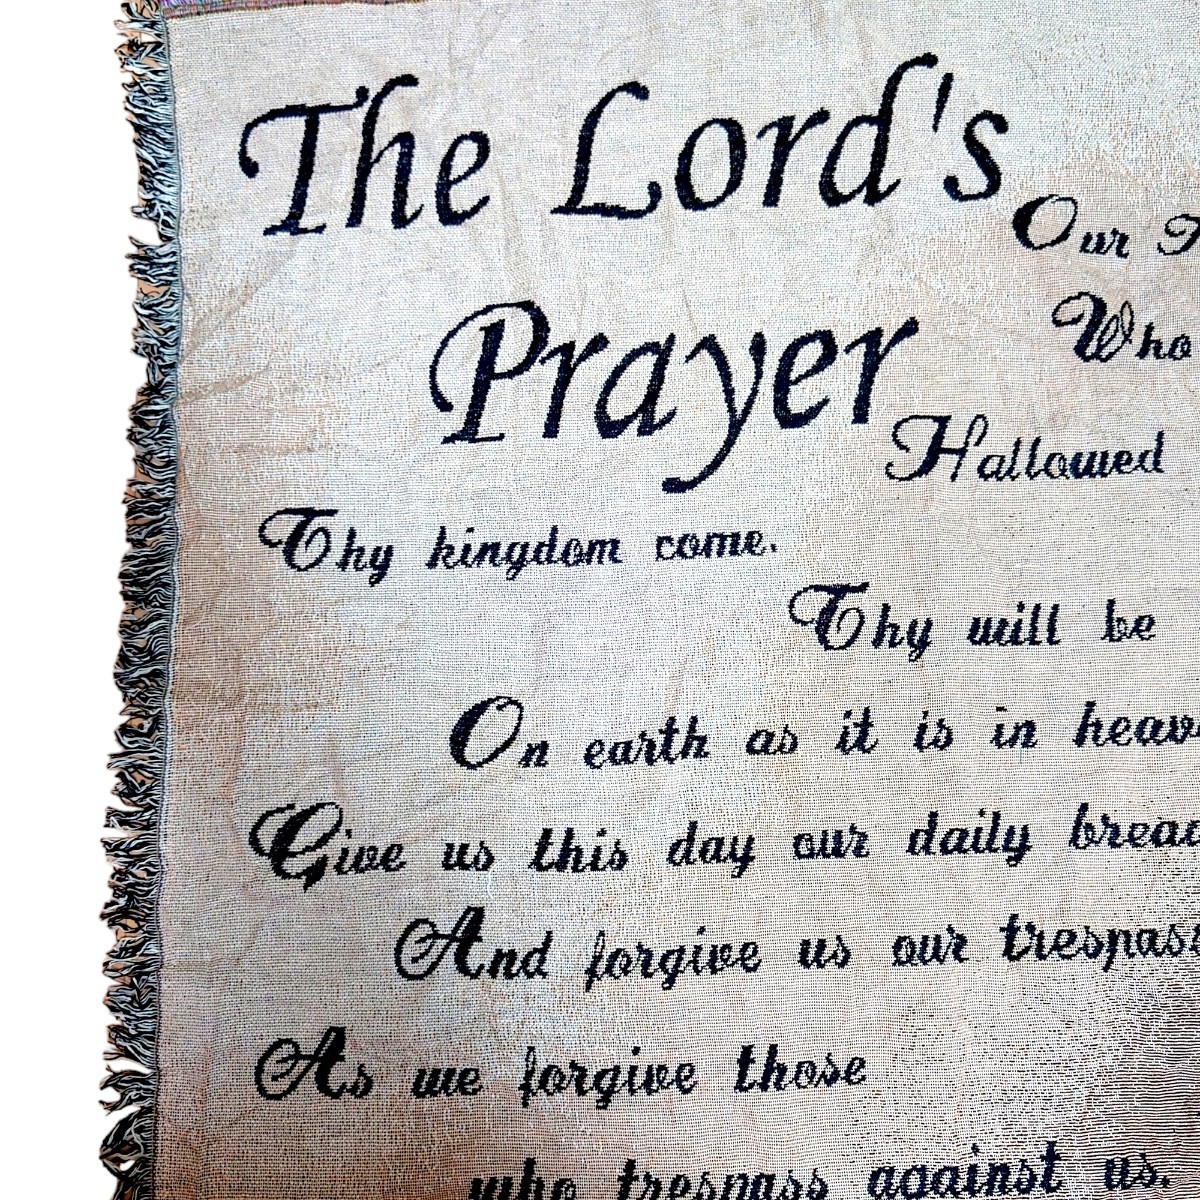 The Lord's
Our
Prayer
Who
Hallowed
Thy kingdom come.
Thy will be
On earth as it is in heav
Give us this day our daily brea
And forgive us our trespass
As we forgive those
who trespass against us.